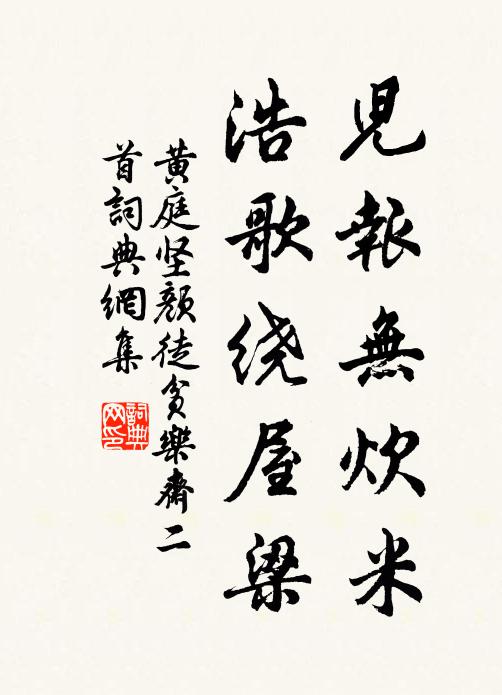 兒報無炊米
浩歌绕屋梁
黄庭坚顏徒贫樂齋二
首詞典網集
詞典
网印